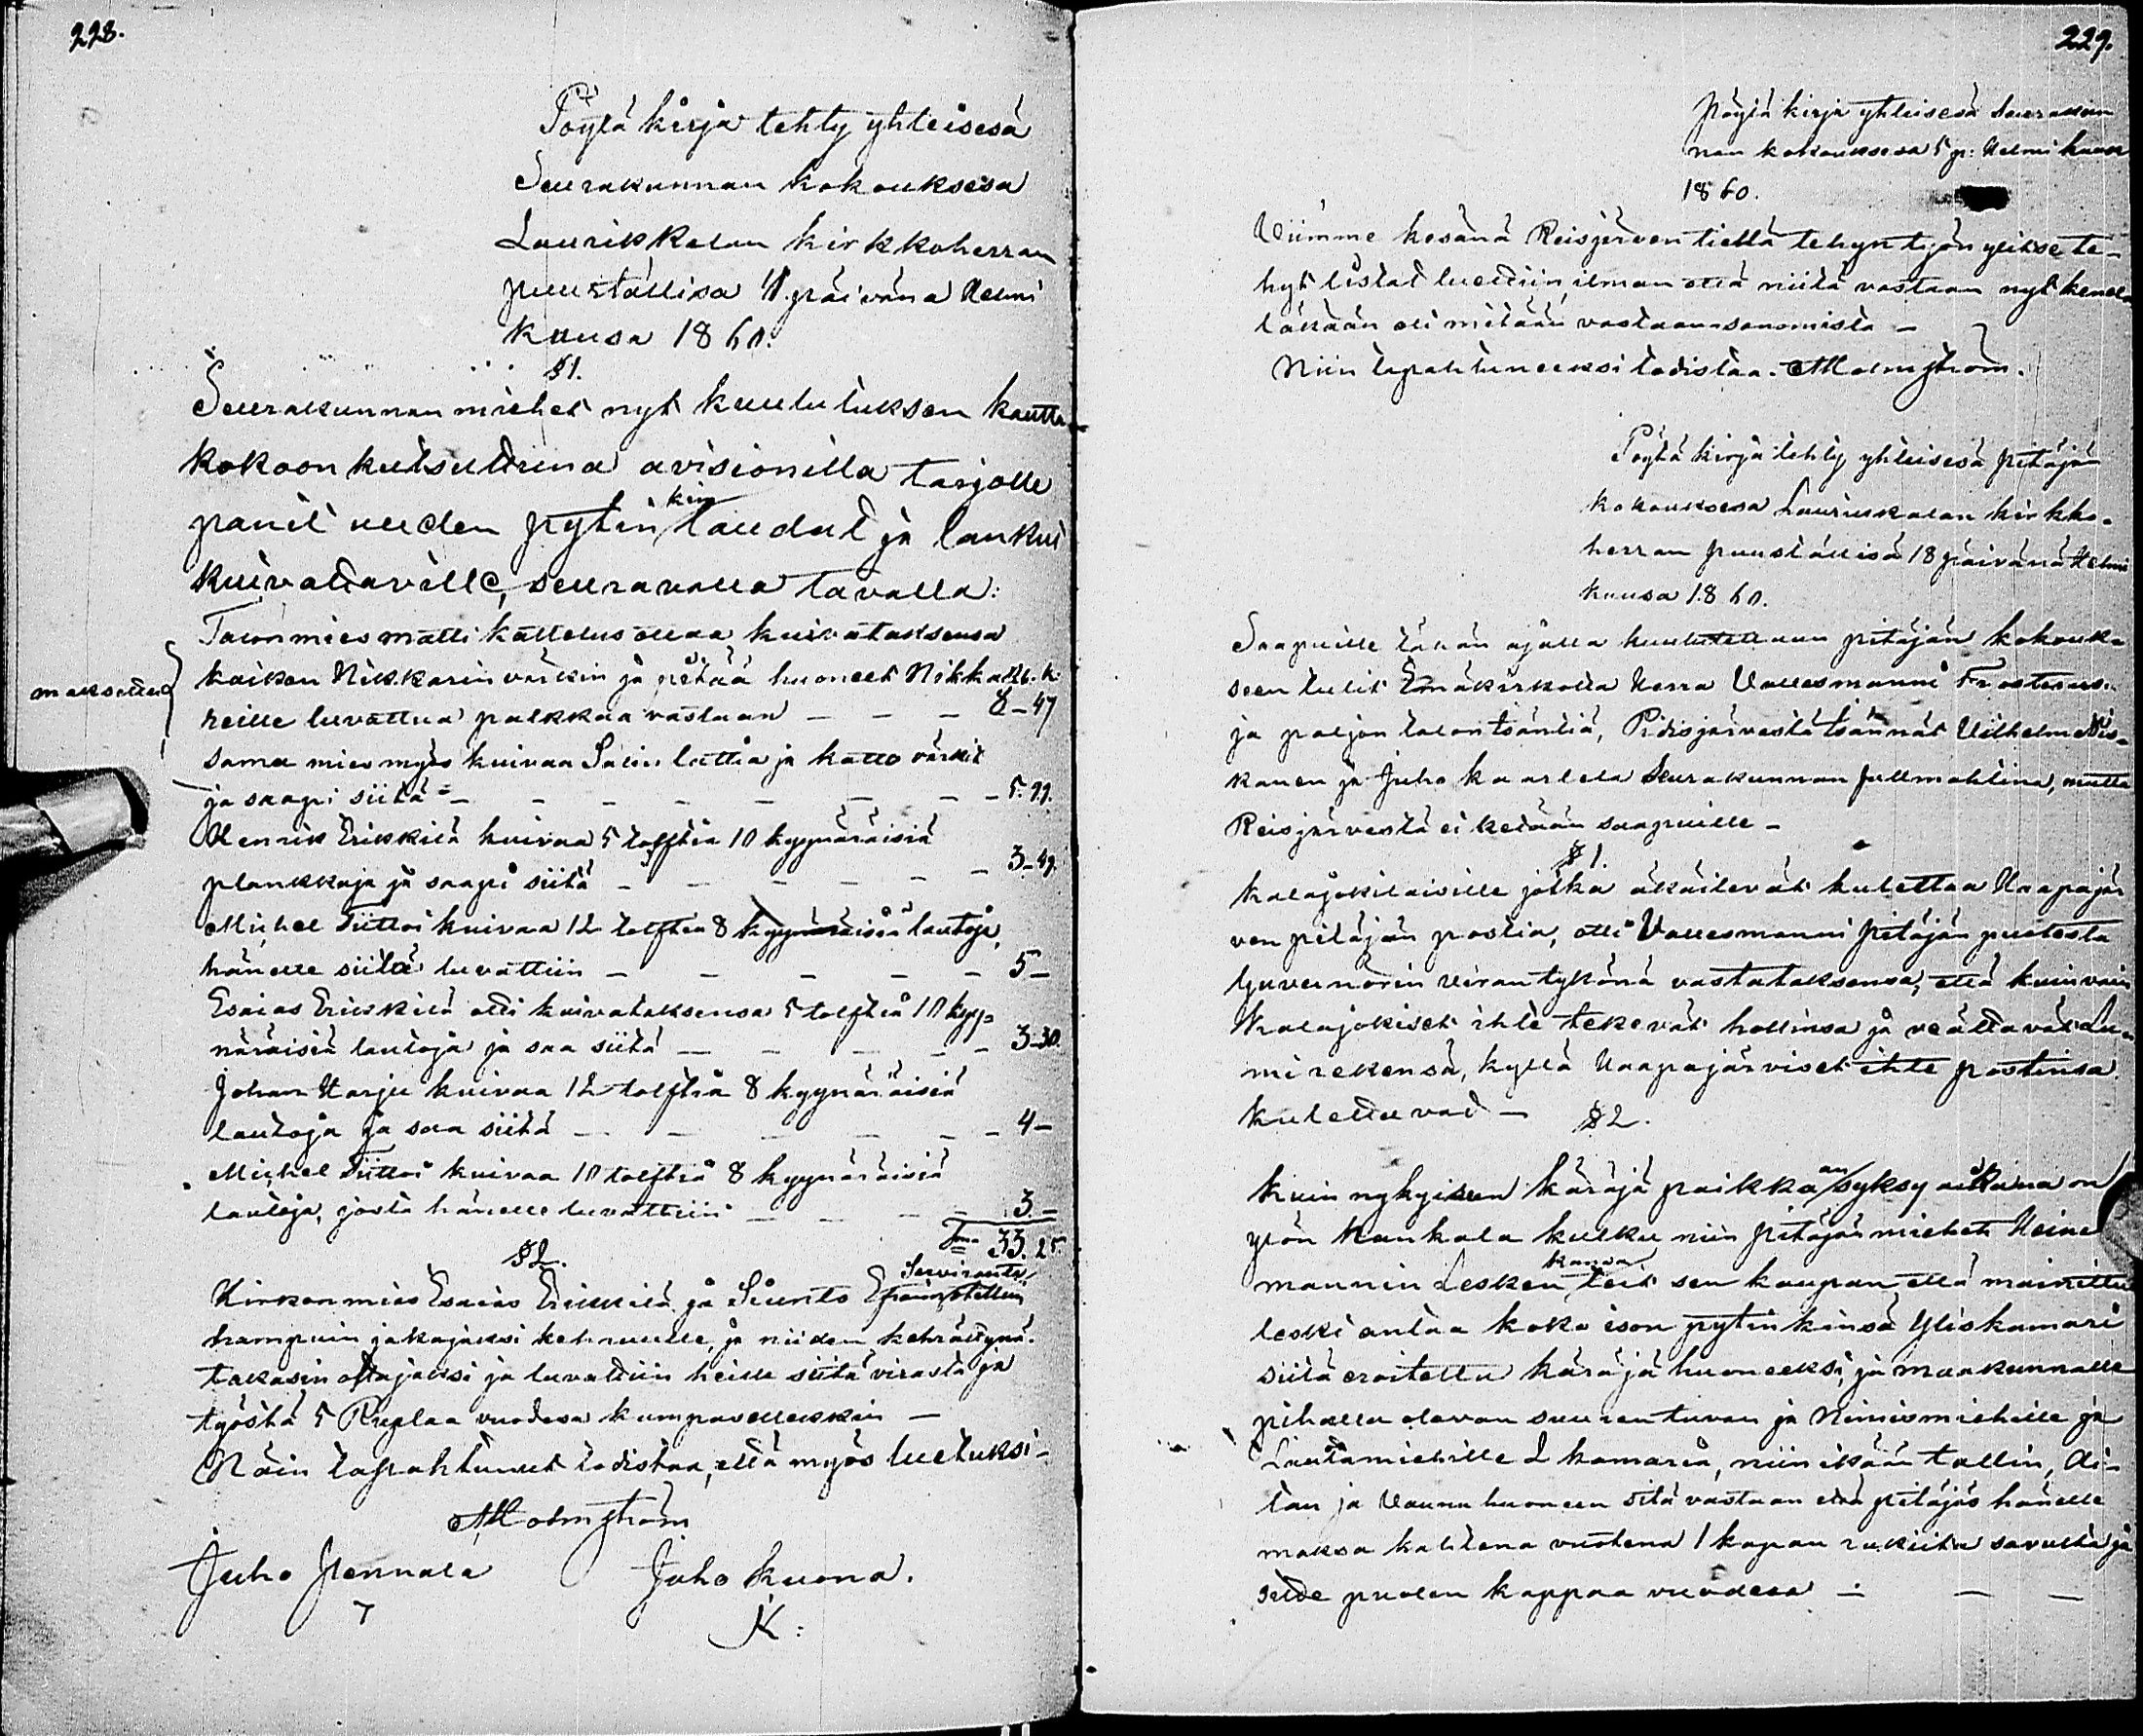 228.
Pöytä kirja tehty yhteisesä
Seurakunnan kokouksesa
Laurikkalan kirkkoherran
puuställisa päivänä Helmi
kuusa 1860.
§ 1.
Seurakunnan miehet nyt kuulutuksen kautta
kokoon kutsuttuina avisionilla tarjolle
panit uuden pytinkin laudat ja lankut
kuivattaville, seuravalla tavalla:
Talonmies Matti Kattelus ottaa kuivataksensa
kaiken Nikkarin värkin ja pitää huoneet Nikka Rb. k.
maksettu
reille luvattua palkkaa vastaan — — — 8-47
sama mies myös kuivaa Salin lattia ja katto värkit
ja saapi siitä — — — — — — — 5.99.
Henrik Erikkilä kuivaa 5 tolftia 10 kyynäräisiä
plankkuja ja saapi siitä — — — — — 3-49.
Michel Tiittoi kuivaa 12 tolftia 8 kyynäräisiä lautoja,
hänelle siitä luvattiin — — — — — 5 —
Esaias Erikkilä otti kuivataksensa 5 tolftia 10 kyy-
näräisiä lautoja ja saa siitä — — — — 3-30.
Johan Harju kuivaa 12 tolftia 8 kyynäräisiä
lautoja ja saa siitä — — — — — 4 —
Michel Tiittoi kuivaa 10 tolftia 8 kyynäräisiä
lautoja, josta hänelle luvattiin — — — — 3. —
33.25.
§ 2.
Kirkonmies Esaias Erikkilä ja Siunto
hampuin jakajaksi kehruulle, ja niiden kehrättynä
takasin ottajaksi ja luvattiin heille siitä virasta ja
työstä 5 Ruplaa vuodesa kumpasellekkin —
Näin tapahtunut todistaa, että myös luetuksi —
A Malmström
Juho Pennala Juho Kuona.
K:
229.
Pöytä kirja yhteisesä Seurakun
nan kokouksesa 5 p: Helmi kuusa
1860.
Viimme kesänä Reisjärven tiellä tehyn työn ylitse te-
hyt listat luettiin, ilman että niitä vastaan nyt kenel
läkään oli mitään vastaansanomista —
Niin tapahtuneeksi todistaa. A Malmström.
Pöytä kirja tehty yhteisesä pitäjän
kokouksesa Laurikkalan kirkko-
herran puuställisä 18 päivänä Helmi
kuusa 1860.
Saapuille tähän ajalla kuulutettuun pitäjän kokouk-
seen tulit Emäkirkolta Herra Vallesmanni
ja paljon talon isäntiä, Pidisjärvestä isännät Vilhelm Nis-
kanen ja Juho Kaarlela Seurakunnan fullmahtina, mutta
Reisjärvestä ei ketään saapuille —
§ 1.
Kalajokilaisille jotka äkäilevät kulettaa Haapajär
ven pitäjän postia, otti Vallesmanni pitäjän puolesta
Guvernörin viran tykönä vastataksensa, että kuin vain
Kalajokiset ihte tekevät hollinsa ja veättävät Lu-
mi rekensä, kyllä Haapajärviset ihte postinsa
kulettavad — § 2.
Kuin nykyisen käräjä paikkaan syksy aikana on
ylön hankala kulku niin pitäjän miehet Heine
mannin Lesken kansa teit sen kaupan että mainittu
leski antaa koko ison pytinkinsä Yliskamari
siitä eroitettu käräjä huoneeksi, ja maakunnalle
pihalla olevan suuren tuvan ja Nimismiehille ja
Lautamiehille 2 kamaria, niin ikään tallin, Ai-
tan ja Vaunu huoneen sitä vastaan että pitäjäs hänelle
maksa kahtena vuotena 1 kapan rukiita savulta ja
puolen kappaa vuodesa — — —